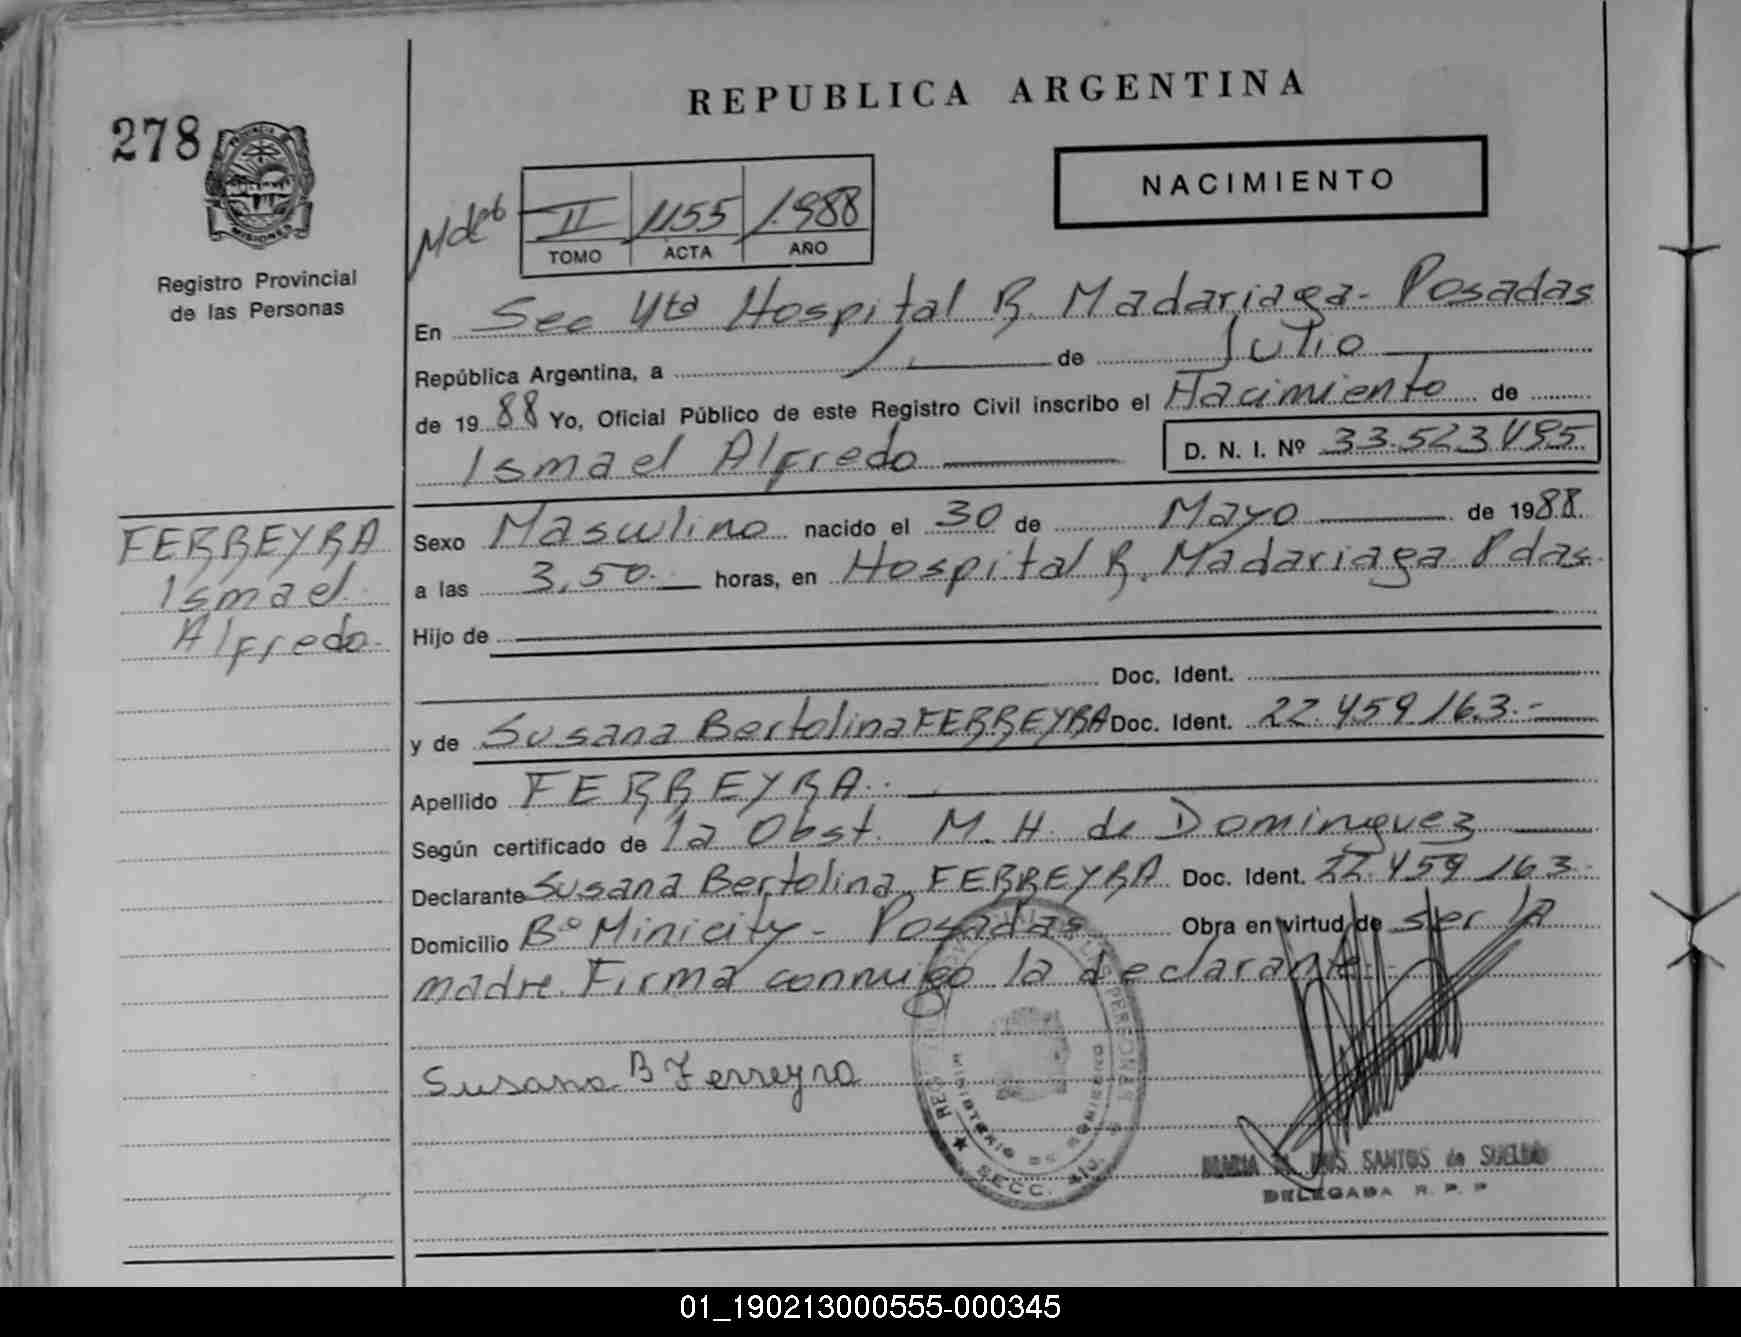 REPUBLICA ARGENTINA
278
PROVINCIA DE
MISIONES
Registro Provincial
de las Personas
NACIMIENTO
II 1155 1.988
TOMO ACTA AÑO
En Sec 4ta Hospital R. Madariaga - Posadas
República Argentina, a 1 de Julio
de 1988 Yo, Oficial Público de este Registro Civil inscribo el Nacimiento de
Ismael Alfredo D. N. I. Nº 33.523.495
FERREYRA
Ismael
Alfredo.
Sexo Masculino nacido el 30 de Mayo de 1988.
a las 3,50. horas, en Hospital R. Madariaga Pdas.
Hijo de
Doc. Ident.
y de Susana Bertolina FERREYRA Doc. Ident. 22.459.163.-
Apellido FERREYRA.
Según certificado de la Obst. M. H. de Dominguez
Declarante Susana Bertolina FERREYRA Doc. Ident. 22.459.163.
Domicilio Bº Minicity - Posadas Obra en virtud de ser la
madre. Firma conmigo la declarante.
Susana B Ferreyra
SANTOS de SUELDO
DELEGADA R. P. P
SECC.
01_190213000555-000345